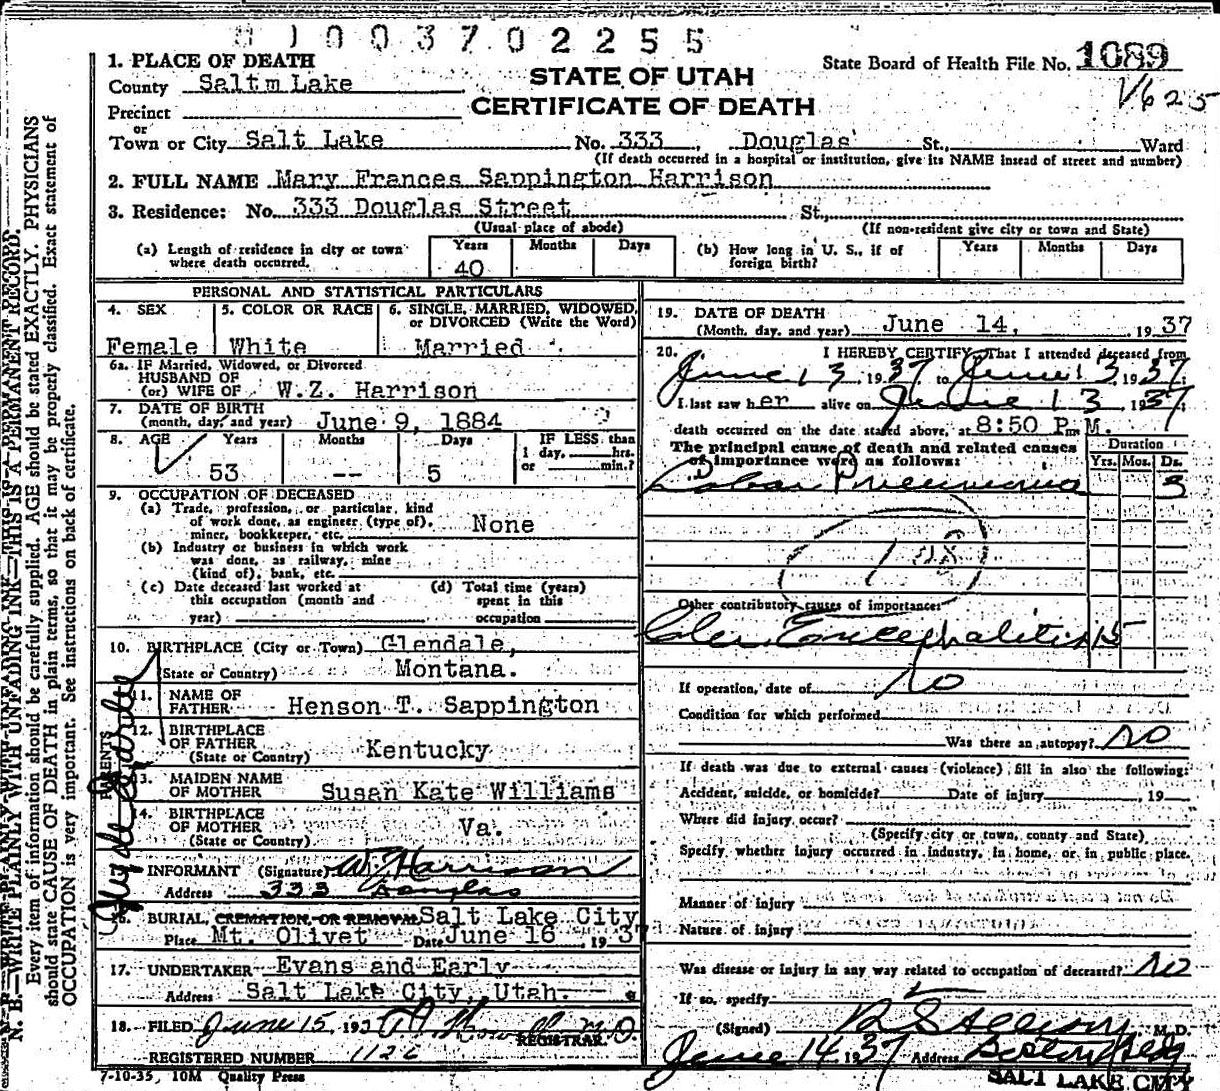 8 1 0 0 3 7 0 2 2 5 5
1. PLACE OF DEATH
County Saltm Lake
Precinct
or
Town or City Salt Lake No. 333 Douglas St., Ward
(If death occurred in a hospital or institution, give its NAME insead of street and number)
STATE OF UTAH
CERTIFICATE OF DEATH
State Board of Health File No. 1089
V625
2. FULL NAME Mary Frances Sappington Harrison
3. Residence: No. 333 Douglas Street St.,
(Usual place of abode) (If non-resident give city or town and State)
(a) Length of residence in city or town where death occurred. Years 40 Months Days
(b) How long in U. S., if of foreign birth? Years Months Days
PERSONAL AND STATISTICAL PARTICULARS
4. SEX Female
5. COLOR OR RACE White
6. SINGLE, MARRIED, WIDOWED, or DIVORCED (Write the Word) Married
6a. IF Married, Widowed, or Divorced
HUSBAND OF
(or) WIFE OF W.Z. Harrison
7. DATE OF BIRTH
(month, day, and year) June 9, 1884
8. AGE Years 53 Months -- Days 5
IF LESS than
1 day, hrs.
or min.?
9. OCCUPATION OF DECEASED
(a) Trade, profession, or particular, kind
of work done, as engineer (type of),
miner, bookkeeper, etc. None
(b) Industry or business in which work
was done, as railway, mine
(kind of), bank, etc.
(c) Date deceased last worked at
this occupation (month and
year)
(d) Total time (years)
spent in this
occupation
10. BIRTHPLACE (City or Town) Glendale,
(State or Country) Montana.
PARENTS
11. NAME OF
FATHER Henson T. Sappington
12. BIRTHPLACE
OF FATHER Kentucky
(State or Country)
13. MAIDEN NAME
OF MOTHER Susan Kate Williams
14. BIRTHPLACE
OF MOTHER Va.
(State or Country)
INFORMANT (Signature) W Z Harrison
Address 333 Douglas
16. BURIAL, CREMATION, OR REMOVAL Salt Lake City
Place Mt. Olivet Date June 16, 1937
17. UNDERTAKER Evans and Early
Address Salt Lake City, Utah.
18. FILED June 15, 193 M.D.
REGISTRAR.
REGISTERED NUMBER 1126
7-10-35, 10M Quality Press
19. DATE OF DEATH
(Month, day, and year) June 14, 1937
20. I HEREBY CERTIFY, That I attended deceased from
June 13 1937 to June 13 1937
I last saw her alive on June 13 1937
death occurred on the date stated above, at 8:50 P.M.
The principal cause of death and related causes
of importance were as follows:
Duration
Yrs. Mos. Ds.
Lobar Pneumonia 3
108
Other contributory causes of importance:
Encephalitis 15
If operation, date of No
Condition for which performed
Was there an autopsy? No
If death was due to external causes (violence) fill in also the following:
Accident, suicide, or homicide? Date of injury, 19
Where did injury occur?
(Specify city or town, county and State)
Specify whether injury occurred in industry, in home, or in public place.
Manner of injury
Nature of injury
Was disease or injury in any way related to occupation of deceased? No
If so, specify
(Signed) M.D.
June 14 1937 Address Boston Bldg
SALT LAKE CITY
N. B.—WRITE PLAINLY WITH UNFADING INK—THIS IS A PERMANENT RECORD.
Every item of information should be carefully supplied. AGE should be stated EXACTLY. PHYSICIANS
should state CAUSE OF DEATH in plain terms, so that it may be properly classified. Exact statement of
OCCUPATION is very important. See instructions on back of certificate.